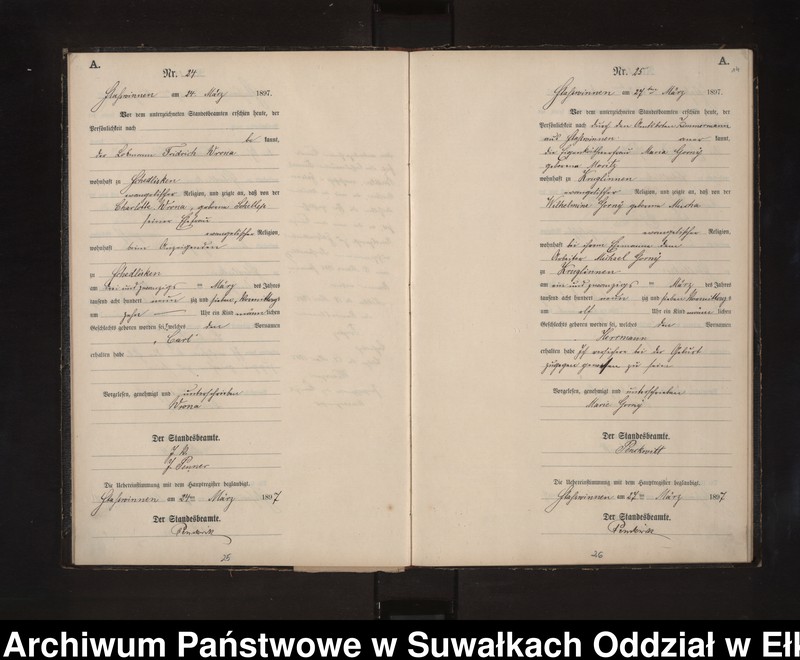 A.
Nr. 24
am 24 März 1897.
Vor dem unterzeichneten Standesbeamten erschien heute, der
Persönlichkeit nach
be kannt,
der Friedrich Wrona
wohnhaft zu
evangelischer Religion, und zeigte an, daß von der
Charlotte Wrona, geborne
seiner Ehefrau
evangelischer Religion,
wohnhaft beim Anzeigenden
zu
am drei und zwanzigs ten März des Jahres
tausend acht hundert neun zig und sieben, Vormittags
um zehn Uhr ein Kind männlichen
Geschlechts geboren worden sei, welches den Vornamen
Carl
erhalten habe
Vorgelesen, genehmigt und unterschrieben
Wrona
Der Standesbeamte.
J. V.
Die Uebereinstimmung mit dem Hauptregister beglaubigt.
am 24ten März 1897
Der Standesbeamte.
25
A.
Nr. 25
am 27ten März 1897.
Vor dem unterzeichneten Standesbeamten erschien heute, der
Persönlichkeit nach durch den Zimmermann
aus aner kannt,
die Maria
geborene
wohnhaft zu Kruglinnen
evangelischer Religion, und zeigte an, daß von der
Wilhelmine geborene
evangelischer Religion,
wohnhaft bei ihrem Ehemanne dem
Arbeiter Michael
zu Kruglinnen
am ein und zwanzigs ten März des Jahres
tausend acht hundert neun zig und sieben Vormittags
um elf Uhr ein Kind männlichen
Geschlechts geboren worden sei, welches den Vornamen
Herrmann
erhalten habe Ich versichere bei der Geburt
zugegen gewesen zu sein
Vorgelesen, genehmigt und unterschrieben
Marie
Der Standesbeamte.
Die Uebereinstimmung mit dem Hauptregister beglaubigt.
am 27ten März 1897
Der Standesbeamte.
26
Archiwum Państwowe w Suwałkach Oddział w Ełk